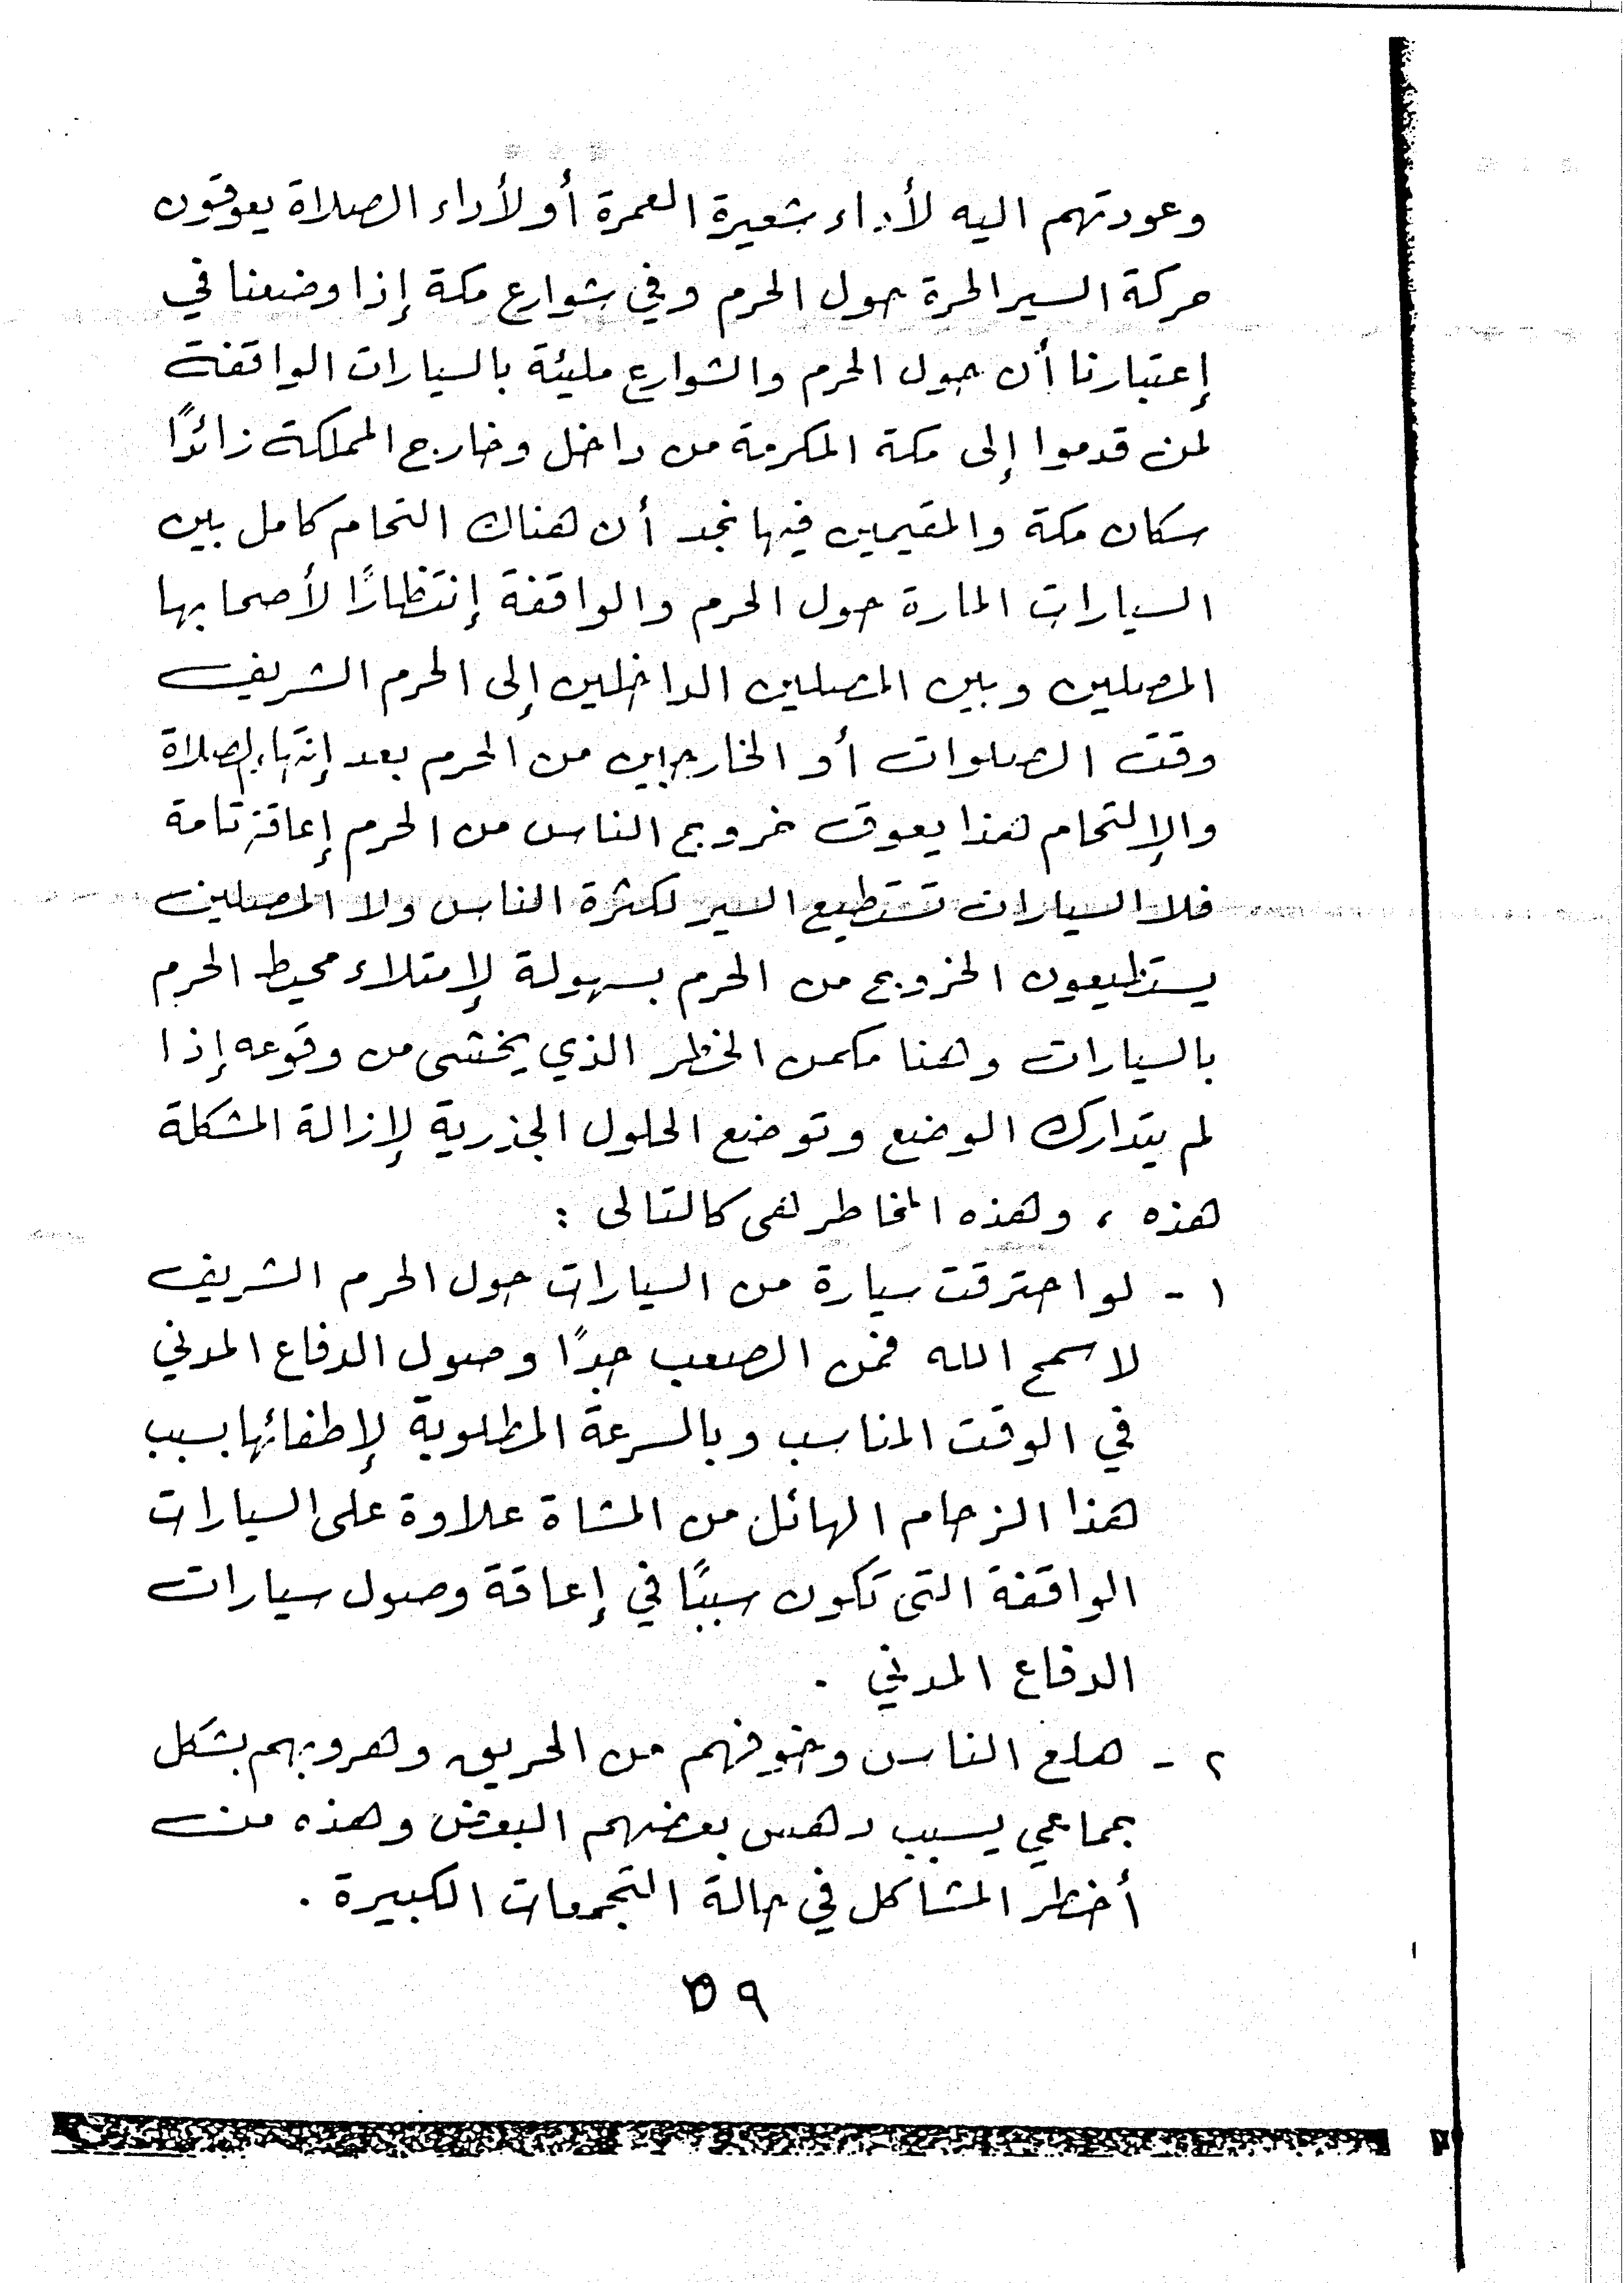 وعودتهم اليه لأداء شعيرة العمرة أو لأداء الصلاة يعوقون
حركة السير الحرة حول الحرم وفي شوارع مكة إذا وضعنا في
إعتبارنا أن حول الحرم والشوارع مليئة بالسيارات الواقفة
لمن قدموا إلى مكة المكرمة من داخل وخارج المملكة زائدًا
سكان مكة والمقيمين فيها نجد أن هناك التحام كامل بين
السيارات المارة حول الحرم والواقفة إنتظارًا لأصحابها
المصلين وبين المصلين الداخلين إلى الحرم الشريف
وقت الصلوات أو الخارجين من الحرم بعد إنتهاء الصلاة
والإلتحام هذا يعوق خروج الناس من الحرم إعاقة تامة
فلا السيارات تستطيع السير لكثرة الناس ولا المصلين
يستطيعون الخروج من الحرم بسهولة لإمتلاء محيط الحرم
بالسيارات وهنا مكمن الخطر الذي يخشى من وقوعه إذا
لم يتدارك الوضع وتوضع الحلول الجذرية لإزالة المشكلة
هذه ، وهذه المخاطر هى كالتالى :
١ - لو احترقت سيارة من السيارات حول الحرم الشريف
لا سمح الله فمن الصعب جدًا وصول الدفاع المدني
في الوقت المناسب وبالسرعة المطلوبة لإطفائها بسبب
هذا الزحام الهائل من المشاة علاوة على السيارات
الواقفة التى تكون سببًا في إعاقة وصول سيارات
الدفاع المدني .
٢ - هلع الناس وخوفهم من الحريق وهروبهم بشكل
جماعي يسبب دهس بعضهم البعض وهذه من
أخطر المشاكل في حالة التجمعات الكبيرة .
٥٩